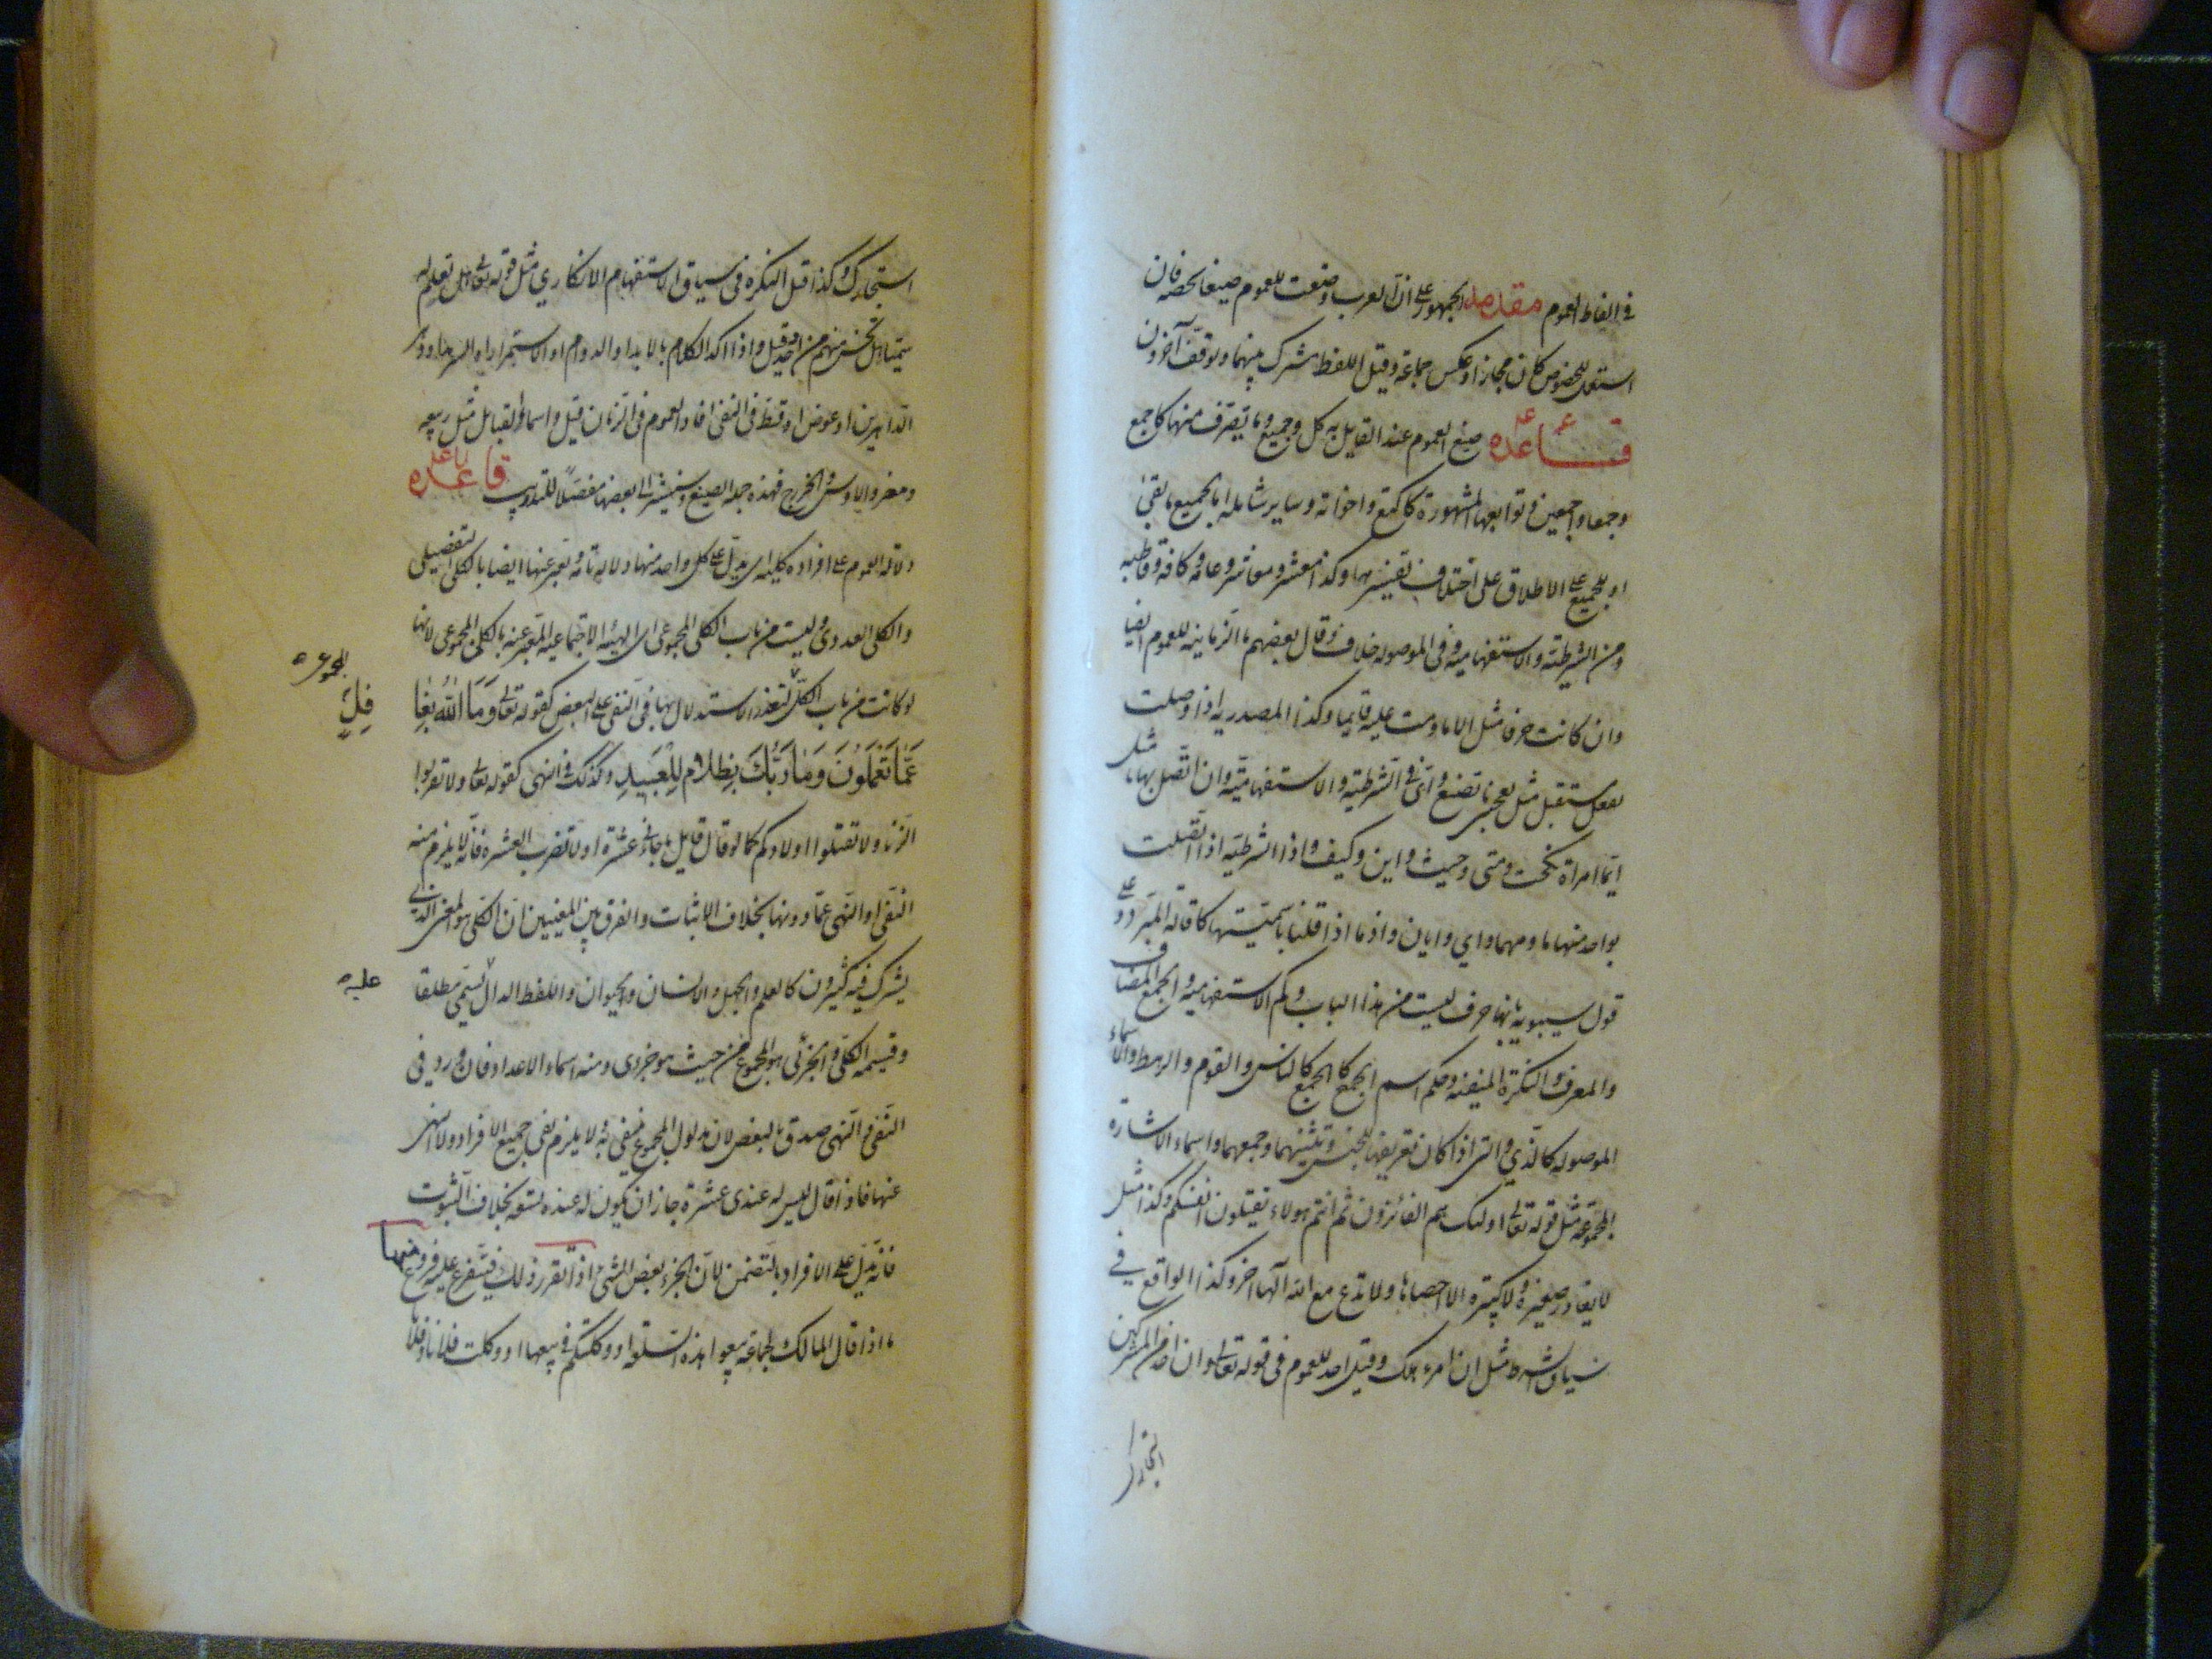 في الفاظ العموم مقدمه الجمهور على ان العرب وضعت للعموم صيغا تخصه فان
استعمل للخصوص كان مجازا وعكس جماعة وقيل اللفظ مشترك بينهما وتوقف آخرون
قاعده صيغ العموم عند القايل به كل وجميع وما يتصرف منها كاجمع
وجمعا واجمعين وتوابعها المشهورة كاكتع واخواته وساير شاملة اما لجميع ما بقى
او للجميع على الاطلاق على اختلاف تفسيرها وكذا معشر ومعاشر وعامة وكافة وقاطبه
ومن الشرطية والاستفهامية وفى الموصوله خلاف وقال بعضهم ما الزمانيه للعموم ايضا
وان كانت حرفا مثل الا ما دمت عليه قايما وكذا المصدريه اذا وصلت
بفعل مستقبل مثل يعجبنى ما تصنع واى فى الشرطية والاستفهامية وان اتصل بها ما مثل
ايما امراة نكحت ومتى وحيث واين وكيف واذا الشرطية اذا اتصلت
بواحد منها ما ومهما واي وايان واذ ما اذا قلنا باسميتها كما قاله المبرد وعلى
قول سيبويه بانها حرف ليست من هذا الباب وكم الاستفهاميه والجمع المضاف
والمعرف والنكرة المنفيه وحكم اسم الجمع كالجمع كالناس والقوم والرهط والاسماء
الموصوله كالذي والتى اذا كان تعريفها للجنس وتثنيتهما وجمعهما واسماء الاشارة
المجموعة مثل قوله تعالى اولئك هم الفائزون ثم انتم هؤلاء تقتلون انفسكم وكذا مثل
لا يغادر صغيرة ولا كبيرة الا احصاها ولا تدع مع الله آلها اخر وكذا الواقع في
سياق الشرط مثل ان امرء هلك وقيل احد للعموم فى قوله تعالى وان احد من المشركين
استجارك
استجارك وكذا قيل النكره فى سياق الاستفهام الانكاري مثل قوله تعالى هل تعلم له
سميا هل تحس منهم من احد قيل واذا اكد الكلام بالابد او الدوام او الاستمرار او السرمد او دهر
الداهرين او عوض او قط فى النفى افاد العموم فى الزمان قيل واسماء القبايل مثل ربيعه
ومضر والاوس والخزرج فهذه جملة الصيغ وسنشير الى بعضها مفصلا للتدريب قاعده
دلالة العموم على افراده كليه اى يدل على كل واحد منها دلاله تامة ويعبر عنها ايضا بالكلى التفصيلى
والكلى العددى وليست من باب الكلى المجموعى اى الهيئه الاجتماعيه المعبر عنه بالكلى المجموعى لانها
لو كانت من باب الكل لتعذر الاستدلال بها فى النفى على البعض كقوله تعالى وَمَا اللّهُ بِغَا
فِلٍ
عَمَّا تَعْمَلُونَ وَمَا رَبُّكَ بِظَلَّامٍ لِلْعَبِيدِ وكذلك فى النهى كقوله تعالى ولا تقربوا
الزنا ولا تقتلوا اولادكم كما لو قال قايل ما جاءني عشرة او لا تضرب العشره فانه لا يلزم منه
النفى او النهى عما دونها بخلاف الاثبات والفرق بين المعنيين ان الكلى هو المعنى الذى
يشترك فيه كثيرون كالعلم والجهل والانسان والحيوان واللفظ الدال يسمى مطلقا
عليه
وقسيمه الكلى والجزئى هو المجموع من حيث هو جزءى ومنه اسماء الاعداد فان ورد فى
النفى والنهى صدق بالبعض لان مدلول المجموع ينتفى به ولا يلزم نفى جميع الافراد ولا النهى
عنها فاذا قال ليس له عندى عشرة جاز ان يكون له عنده تسعه بخلاف الثبوت
فانه يدل على الافراد بالتضمن لان الجزء بعض الشئ اذا تقرر ذلك فيتفرع عليه فروع منها
ما اذا قال المالك لجماعة بيعوا هذه السلعة او وكلتكم فى بيعها او وكلت فلانا وفلانا